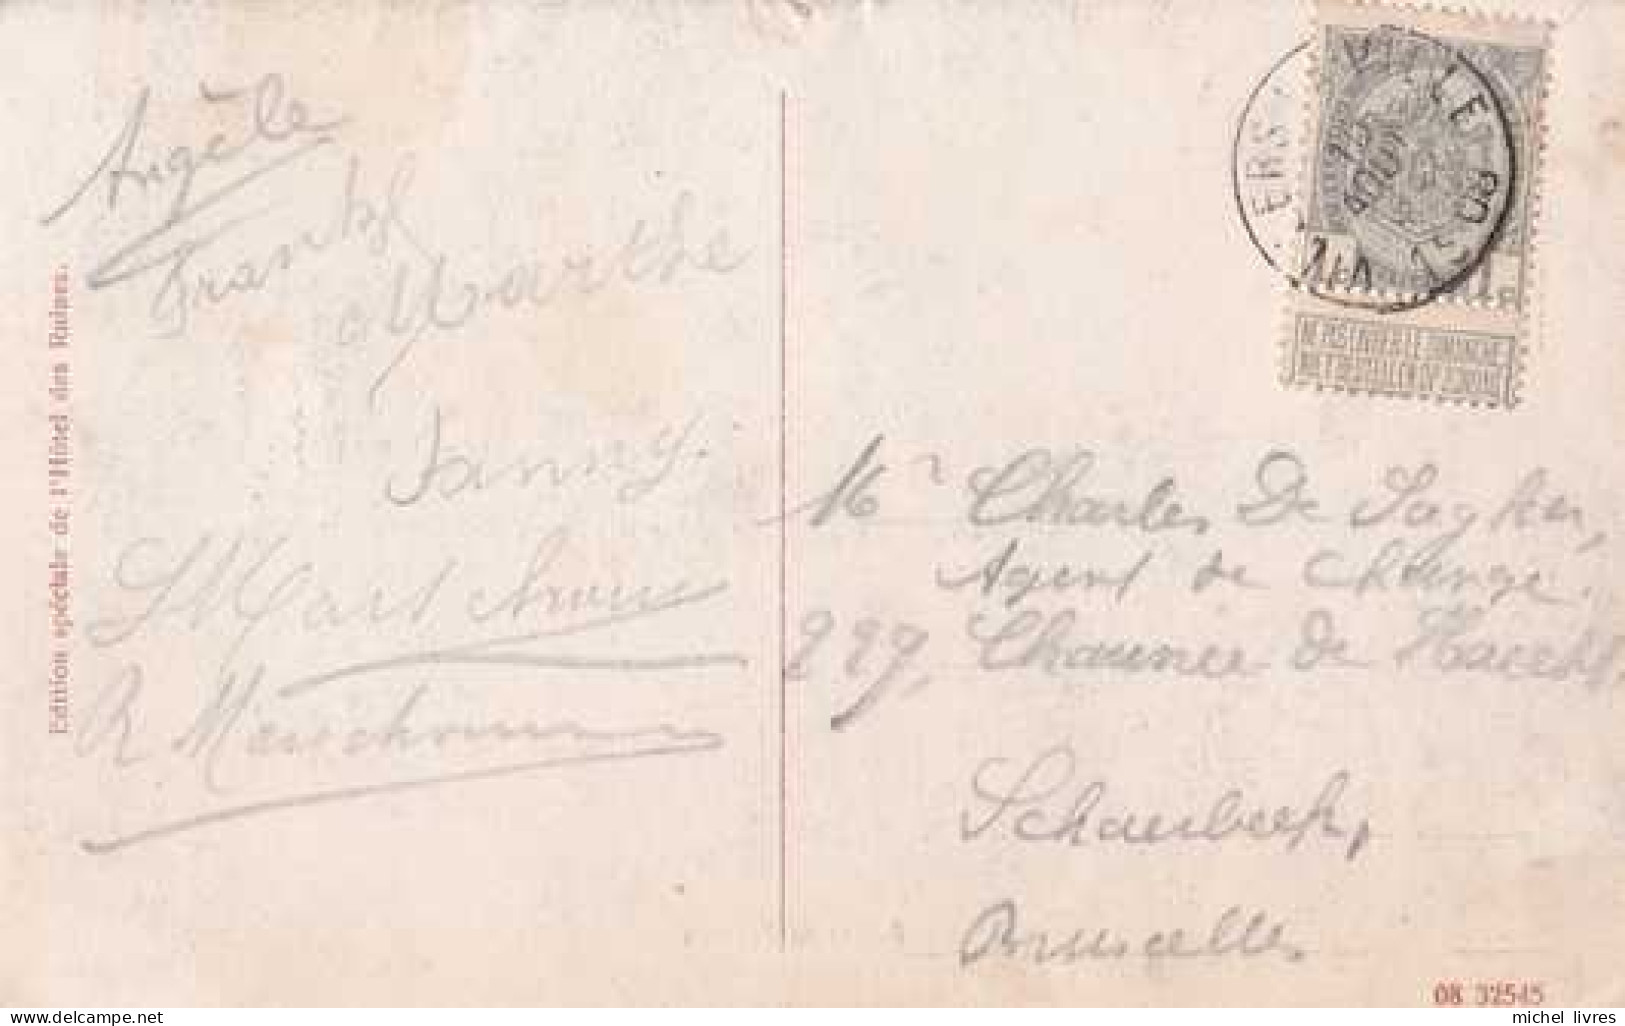 Angèle
Frantz
Marthe
Fanny.
R
Edition spéciale de l'Hôtel des Ruines.
VILLERS
LA VILLE
15
AOUT
1908
1
NE PAS LIVRER LE DIMANCHE
NIET BESTELLEN OP ZONDAG
Mr Charles De
Agent de change.
227, Chaussée de Haecht
Schaerbeek,
Bruxelles
08 32545
michel_livres
www.delcampe.net